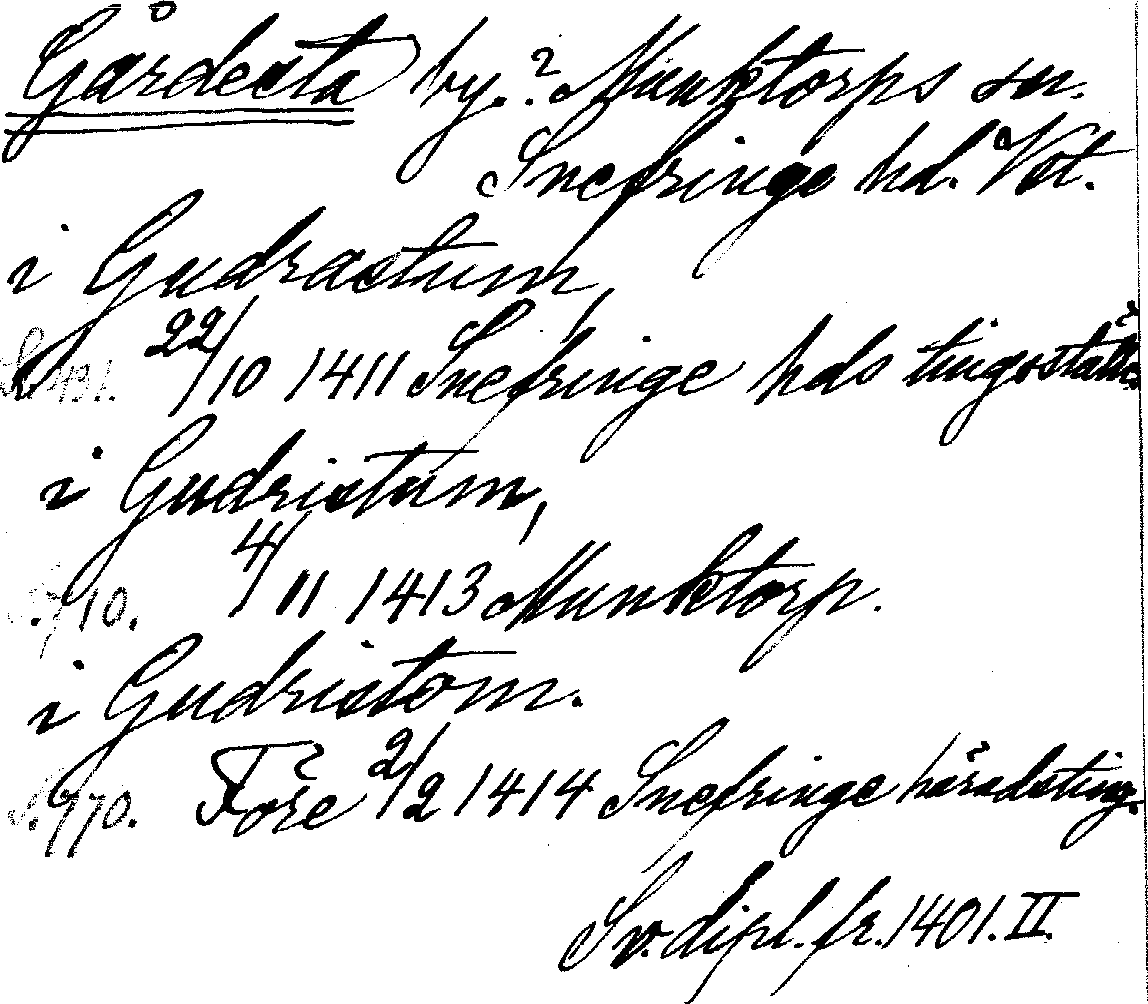 Gårdesta by.? Munktorps sn.
Snefringe hd. Vst.
i Gudrastum,
S. 431. 22/10 1411 Snefringe hds tingsställe
i Gudristum,
S. 710. 4/11 1413 Munktorp.
i Gudristom.
S. 770. Före 2/2 1414 Snefringe häradsting.
Sv. dipl. fr. 1401. II.